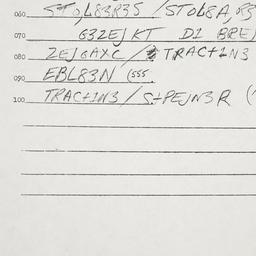 060 STOL83R35 / STOL8A,83
070 G3ZEJ KT D1 BRE
080 ZEJGAXC / TRACTIN3
090 EBL83N (555.
100 TRACTIN3 / S+PEJN3R (